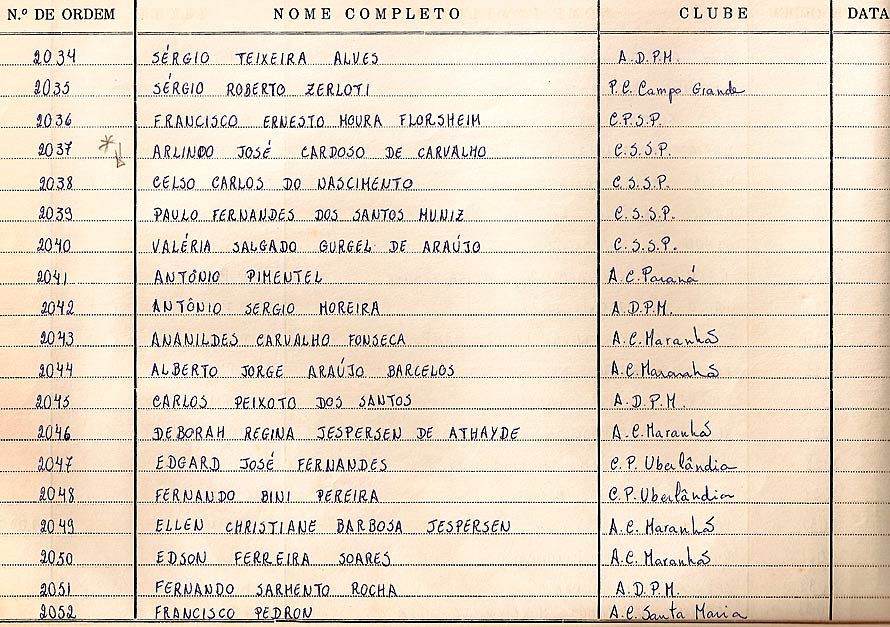 N.º DE ORDEM NOME COMPLETO CLUBE DATA
2034 SÉRGIO TEIXEIRA ALVES A.D.P.M.
2035 SÉRGIO ROBERTO ZERLOTI P.C. Campo Grande
2036 FRANCISCO ERNESTO MOURA FLORSHEIM C.P.S.P.
2037 * ARLINDO JOSÉ CARDOSO DE CARVALHO C.S.S.P.
2038 CELSO CARLOS DO NASCIMENTO C.S.S.P.
2039 PAULO FERNANDES DOS SANTOS MUNIZ C.S.S.P.
2040 VALÉRIA SALGADO GURGEL DE ARAÚJO C.S.S.P.
2041 ANTÔNIO PIMENTEL A.C. Paraná
2042 ANTÔNIO SERGIO MOREIRA A.D.P.M.
2043 ANANILDES CARVALHO FONSECA A.C. Maranhão
2044 ALBERTO JORGE ARAÚJO BARCELOS A.C. Maranhão
2045 CARLOS PEIXOTO DOS SANTOS A.D.P.M.
2046 DEBORAH REGINA JESPERSEN DE ATHAYDE A.C. Maranhão
2047 EDGARD JOSÉ FERNANDES C.P. Uberlândia
2048 FERNANDO BINI PEREIRA C.P. Uberlândia
2049 ELLEN CHRISTIANE BARBOSA JESPERSEN A.C. Maranhão
2050 EDSON FERREIRA SOARES A.C. Maranhão
2051 FERNANDO SARMENTO ROCHA A.D.P.M.
2052 FRANCISCO PEDRON A.C. Santa Maria